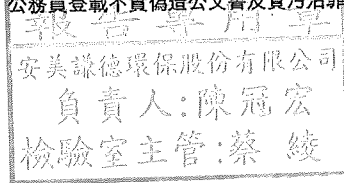 公務員登載不實偽造公文書及貪污治罪
報告專用章
安美謙德環保股份有限公司
負責人:陳冠宏
檢驗室主管:蔡綾